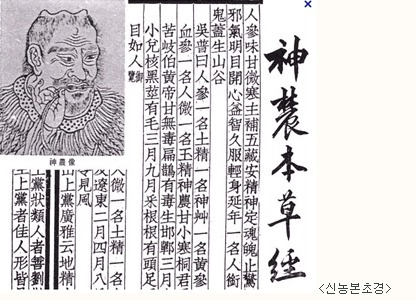 神農本草經
人參味甘微寒主補五藏安精神定魂魄止驚
邪氣明目開心益智久服輕身延年一名人銜
鬼蓋生山谷
吳普曰人參一名土精一名神艸一名黃參
血參一名人微一名玉精神農甘小寒桐君
苦岐伯黃帝甘無毒扁鵲有毒生邯鄲三月
小兒核黑莖有毛三月九月采根根有頭足
目如人御覽
神農像
人微一名土精一名
遼東二月四月八
令見風
上黨廣雅云地精
上黨狀類人者善劉
上黨者佳人形皆
<신농본초경>